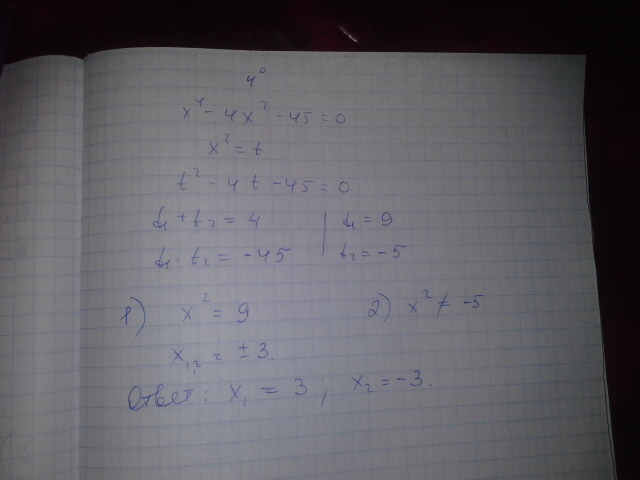 4⁰
x⁴ - 4x² - 45 = 0
x² = t
t² - 4t - 45 = 0
t₁ + t₂ = 4 | t₁ = 9
t₁ · t₂ = -45 | t₂ = -5
1) x² = 9 2) x² ≠ -5
x₁,₂ = ±3.
Ответ: x₁ = 3; x₂ = -3.